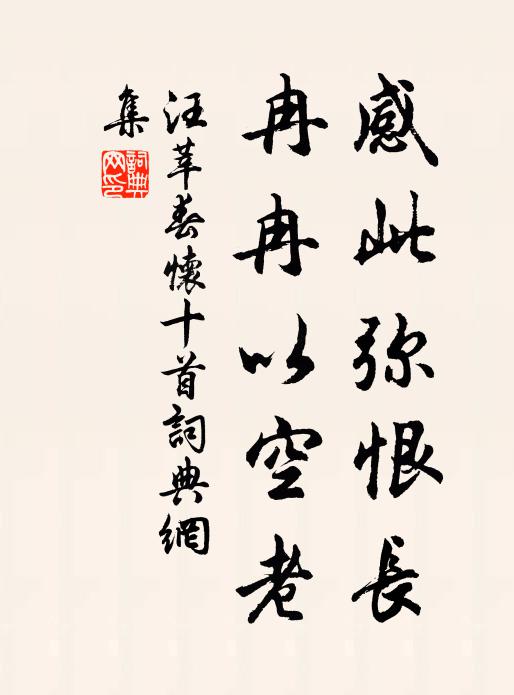 感此弥恨長
冉冉以空老
汪莘春懷十首詞典網
集
詞典
网印